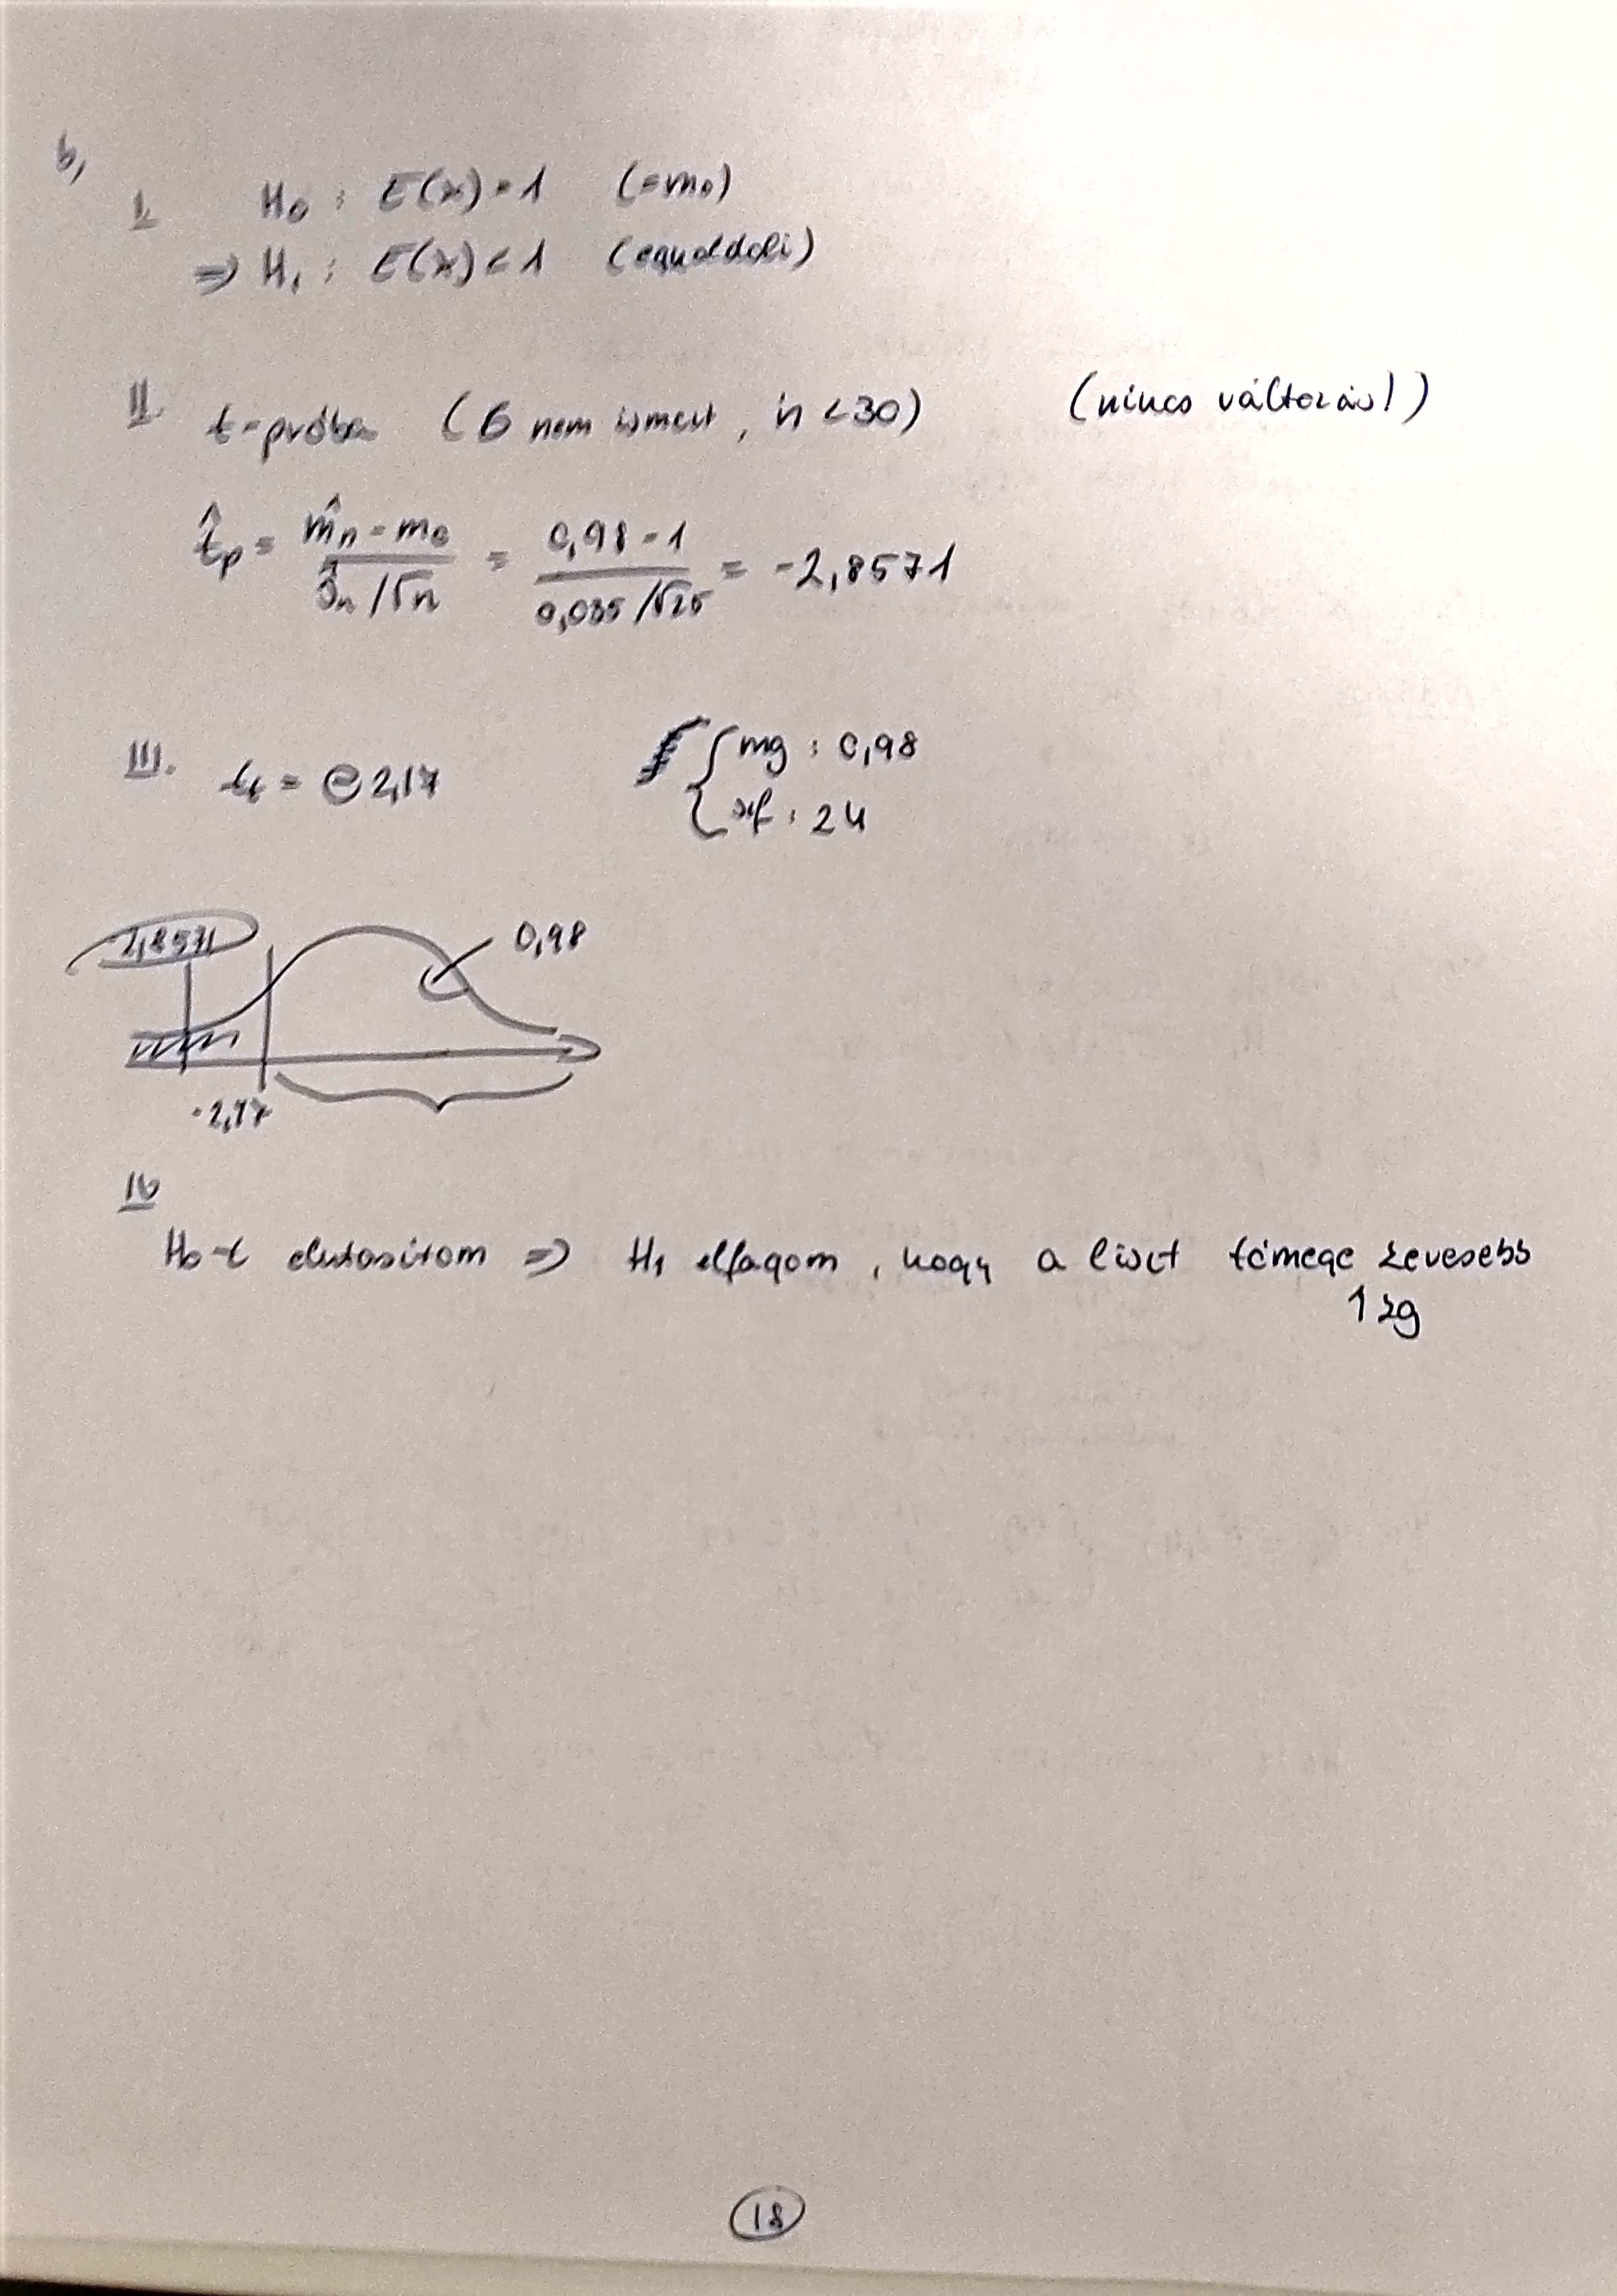 b,
I. H₀ : E(x) = 1 (=m₀)
⇒ H₁ : E(x) < 1 (egyoldali)
II. t-próba (σ nem ismert, n < 30) (nincs változás!)
t̂p = (m̂n - m₀) / (ŝn/√n) = (0,98 - 1) / (0,035/√25) = -2,8571
III. tt = ⊖ 2,17 { mg : 0,98
szf : 24
-2,8571 0,98
-2,17
IV
H₀-t elutasítom ⇒ H₁ elfogom, hogy a liszt tömege kevesebb
1 kg
18